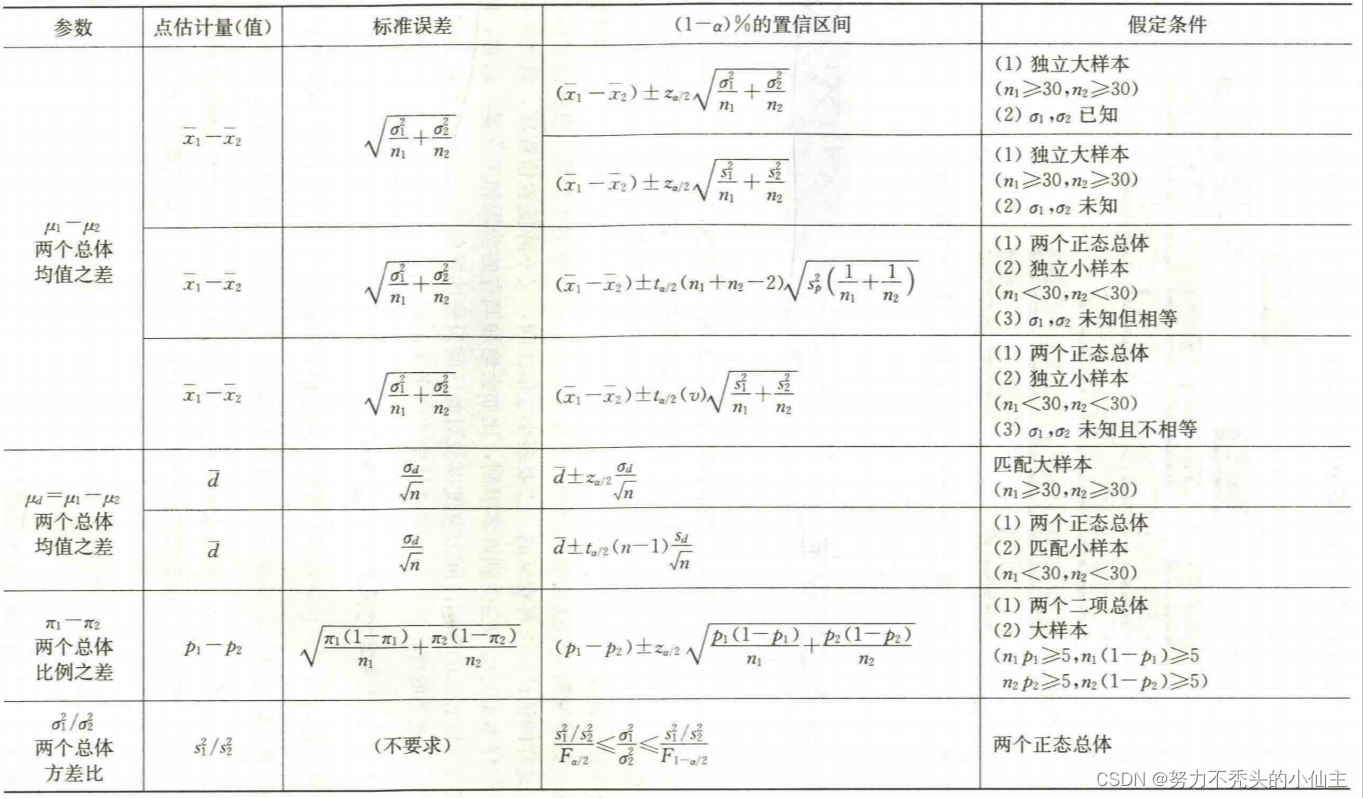 参数 点估计量(值) 标准误差 (1-α)%的置信区间 假定条件
μ₁-μ₂
两个总体
均值之差
x̄₁-x̄₂
√(σ₁²/n₁+σ₂²/n₂)
(x̄₁-x̄₂)±z_α/2√(σ₁²/n₁+σ₂²/n₂)
(1) 独立大样本
(n₁≥30,n₂≥30)
(2) σ₁,σ₂ 已知
(x̄₁-x̄₂)±z_α/2√(s₁²/n₁+s₂²/n₂)
(1) 独立大样本
(n₁≥30,n₂≥30)
(2) σ₁,σ₂ 未知
x̄₁-x̄₂
√(σ₁²/n₁+σ₂²/n₂)
(x̄₁-x̄₂)±t_α/2(n₁+n₂-2)√(s_p²(1/n₁+1/n₂))
(1) 两个正态总体
(2) 独立小样本
(n₁<30,n₂<30)
(3) σ₁,σ₂ 未知但相等
x̄₁-x̄₂
√(σ₁²/n₁+σ₂²/n₂)
(x̄₁-x̄₂)±t_α/2(v)√(s₁²/n₁+s₂²/n₂)
(1) 两个正态总体
(2) 独立小样本
(n₁<30,n₂<30)
(3) σ₁,σ₂ 未知且不相等
μ_d=μ₁-μ₂
两个总体
均值之差
d̄
σ_d/√n
d̄±z_α/2 σ_d/√n
匹配大样本
(n₁≥30,n₂≥30)
d̄
σ_d/√n
d̄±t_α/2(n-1) s_d/√n
(1) 两个正态总体
(2) 匹配小样本
(n₁<30,n₂<30)
π₁-π₂
两个总体
比例之差
p₁-p₂
√(π₁(1-π₁)/n₁+π₂(1-π₂)/n₂)
(p₁-p₂)±z_α/2√(p₁(1-p₁)/n₁+p₂(1-p₂)/n₂)
(1) 两个二项总体
(2) 大样本
(n₁p₁≥5,n₁(1-p₁)≥5
n₂p₂≥5,n₂(1-p₂)≥5)
σ₁²/σ₂²
两个总体
方差比
s₁²/s₂²
(不要求)
(s₁²/s₂²)/F_α/2≤σ₁²/σ₂²≤(s₁²/s₂²)/F_1-α/2
两个正态总体
CSDN @努力不秃头的小仙主